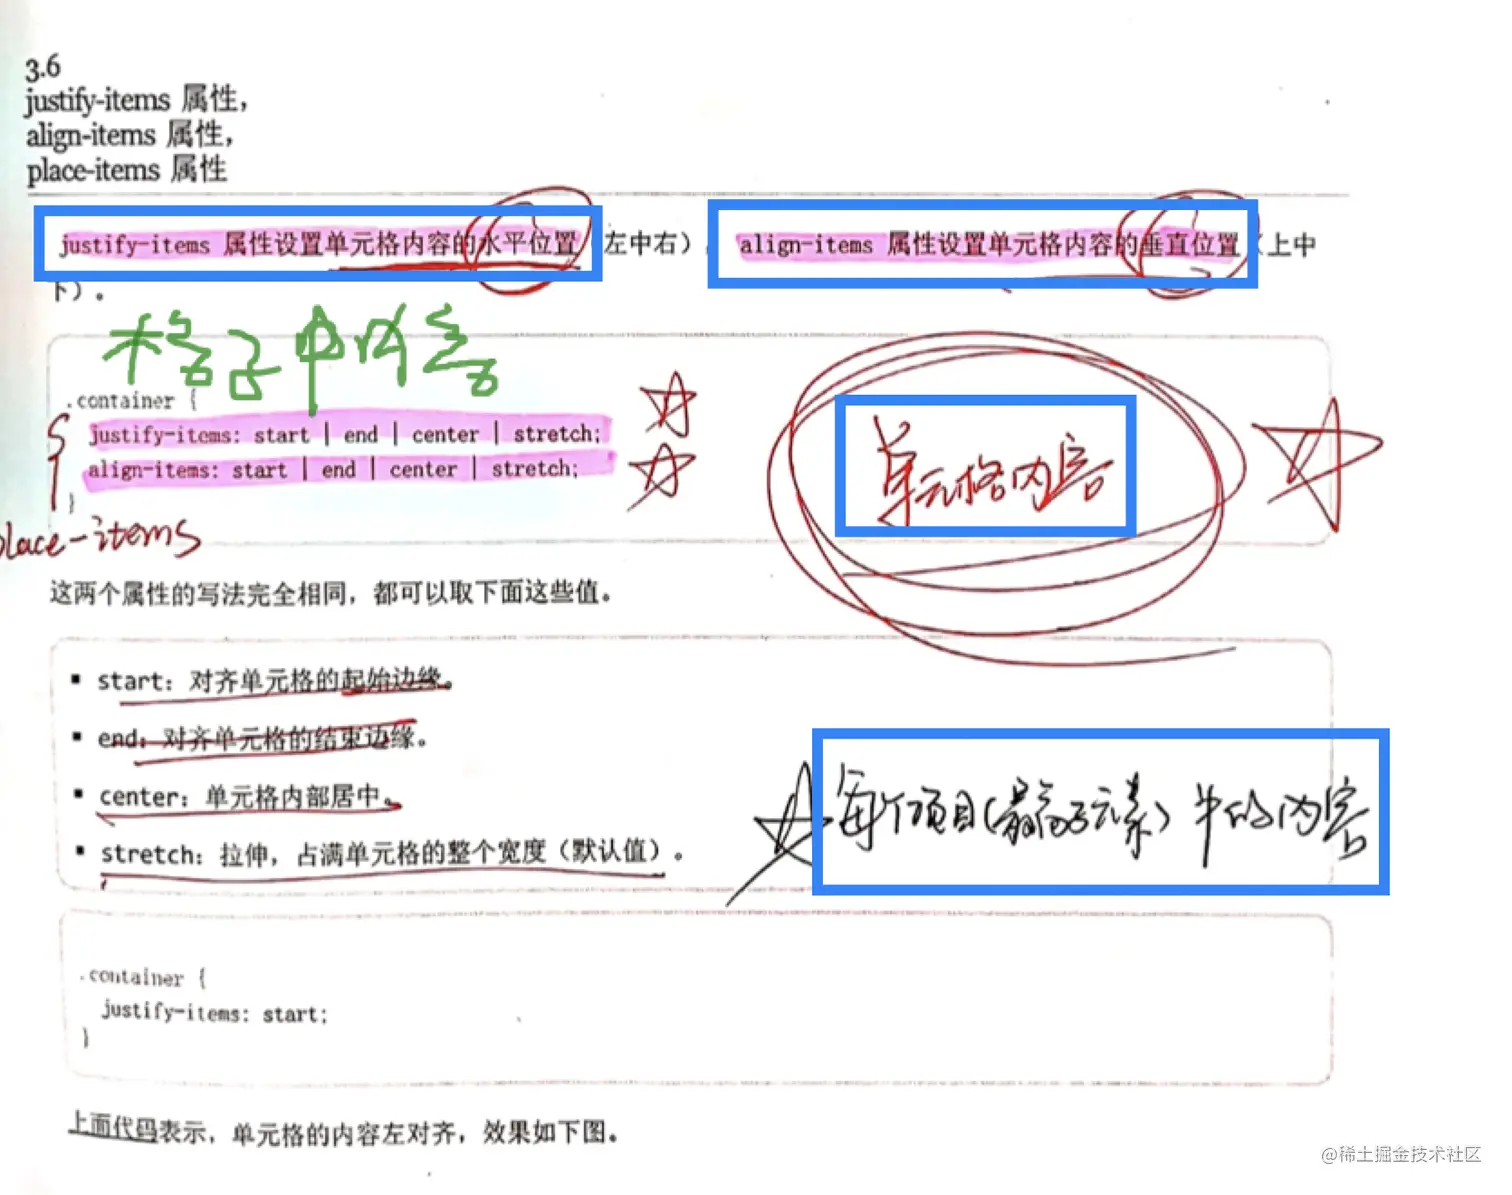 3.6
justify-items 属性，
align-items 属性，
place-items 属性
justify-items 属性设置单元格内容的水平位置（左中右），align-items 属性设置单元格内容的垂直位置（上中
下）。
格子中内容
.container {
justify-items: start | end | center | stretch;
align-items: start | end | center | stretch;
}
单元格内容
place-items
这两个属性的写法完全相同，都可以取下面这些值。
▪ start：对齐单元格的起始边缘。
▪ end：对齐单元格的结束边缘。
▪ center：单元格内部居中。
▪ stretch：拉伸，占满单元格的整个宽度（默认值）。
每个项目(最高子元素)中的内容
.container {
justify-items: start;
}
上面代码表示，单元格的内容左对齐，效果如下图。
@稀土掘金技术社区